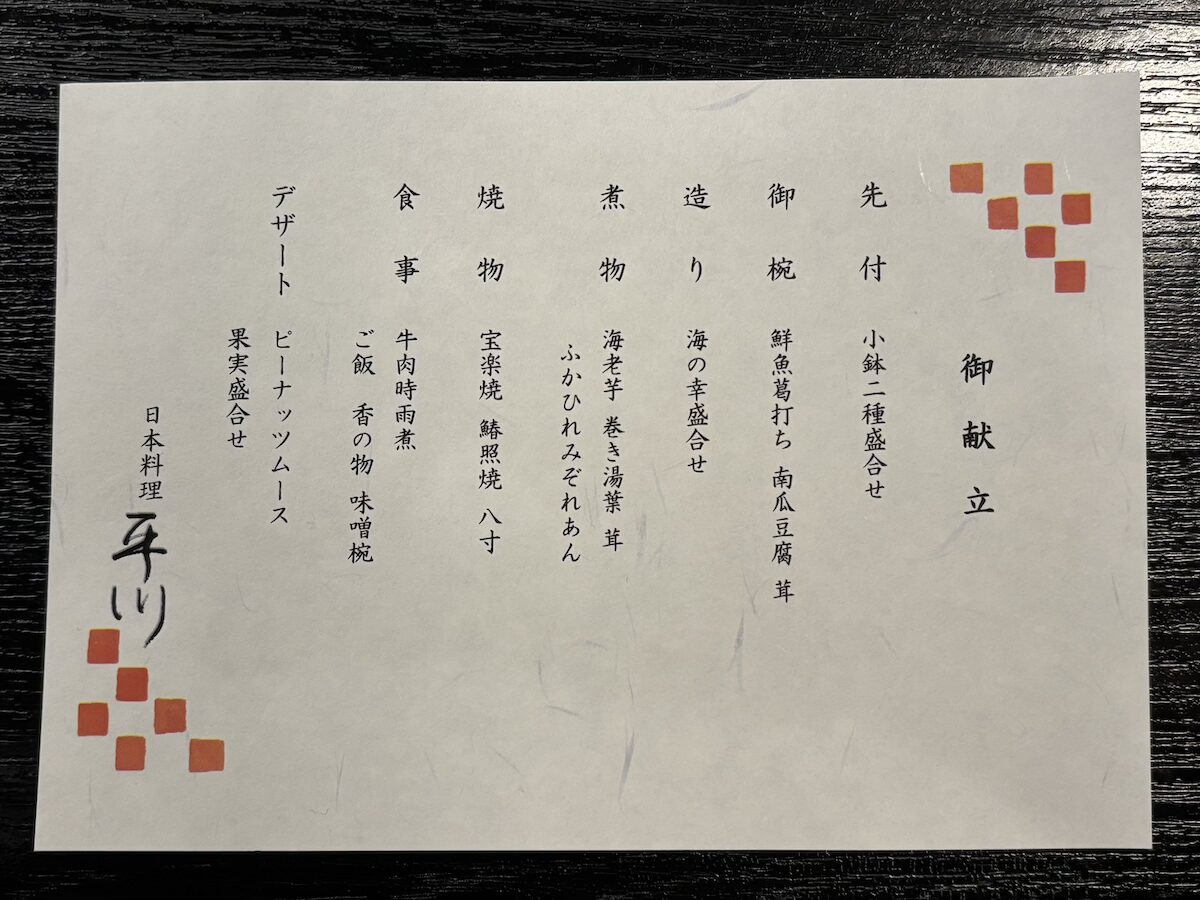 御献立
先付 小鉢二種盛合せ
御椀 鮮魚葛打ち 南瓜豆腐 茸
造り 海の幸盛合せ
煮物 海老芋 巻き湯葉 茸
ふかひれみぞれあん
焼物 宝楽焼 鰆照焼 八寸
食事 牛肉時雨煮
ご飯 香の物 味噌椀
デザート ピーナッツムース
果実盛合せ
日本料理 平川